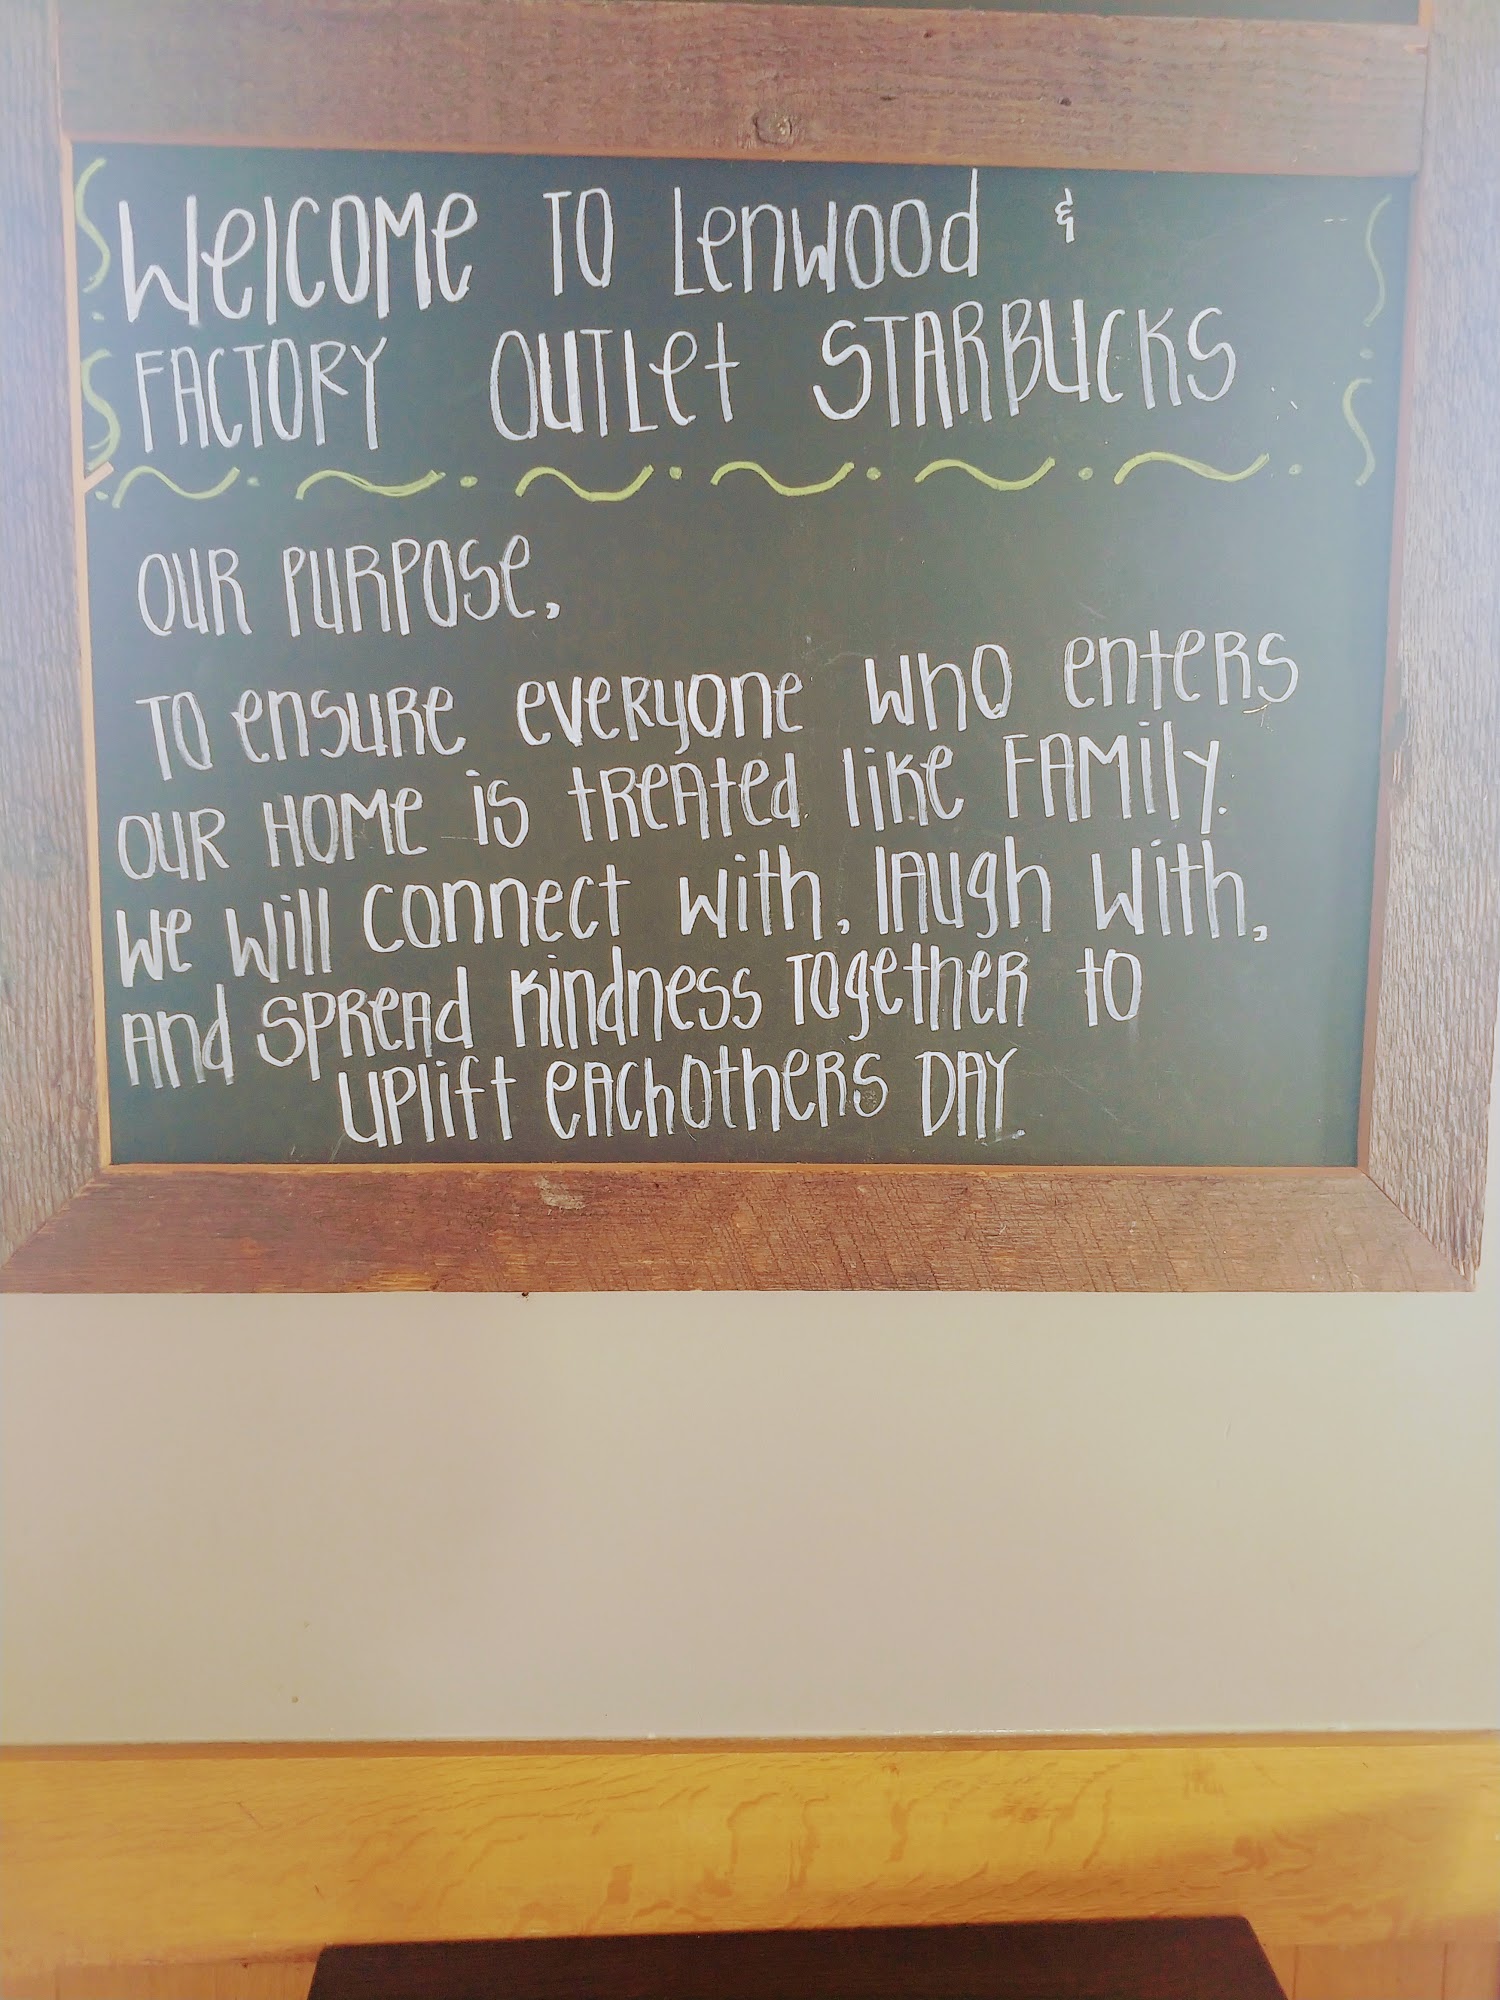 Welcome to Lenwood &
Factory Outlet Starbucks
Our Purpose,
To ensure everyone who enters
our home is treated like family.
We will connect with, laugh with,
and spread kindness together to
uplift eachothers day.